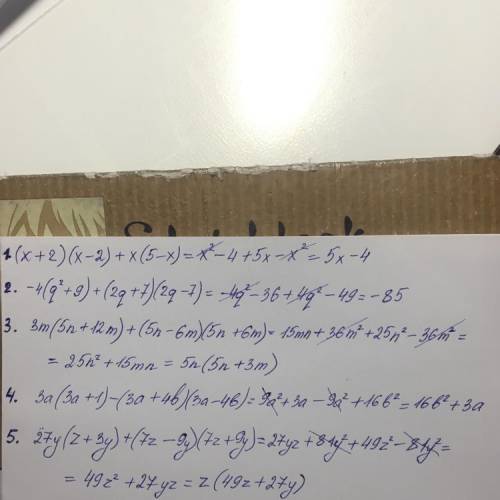 1. (x+2)(x-2)+x(5-x)=x²-4+5x-x²=5x-4
2. -4(q²+9)+(2q+7)(2q-7)=-4q²-36+4q²-49=-85
3. 3m(5n+12m)+(5n-6m)(5n+6m)=15mn+36m²+25n²-36m²=
=25n²+15mn=5n(5n+3m)
4. 3a(3a+1)-(3a+4b)(3a-4b)=9a²+3a-9a²+16b²=16b²+3a
5. 27y(z+3y)+(7z-9y)(7z+9y)=27yz+81y²+49z²-81y²=
=49z²+27yz=z(49z+27y)